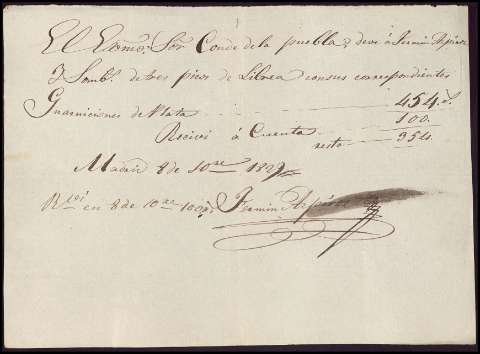 El Exmo. Sor Conde de la puebla, deve á Fermin
3 Somb.s de tres picos de Librea con sus correspondientes
Guarniciones de Plata 454 r.s
Recivi á Cuenta 100.
resto 354.
Madrid 8 de 10.re
R.vi en 8 de 10.re 100 r.s Fermin